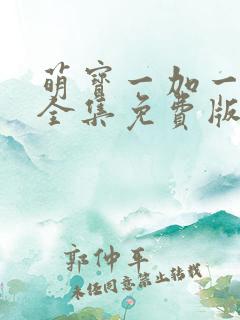 萌宝一加一
全集免费版
郭仲平
未经同意禁止转载